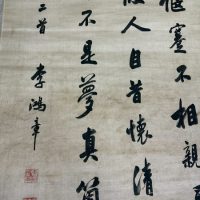 偃蹇不相親
人自昔懷清
不是夢真箇
二首
李鴻章